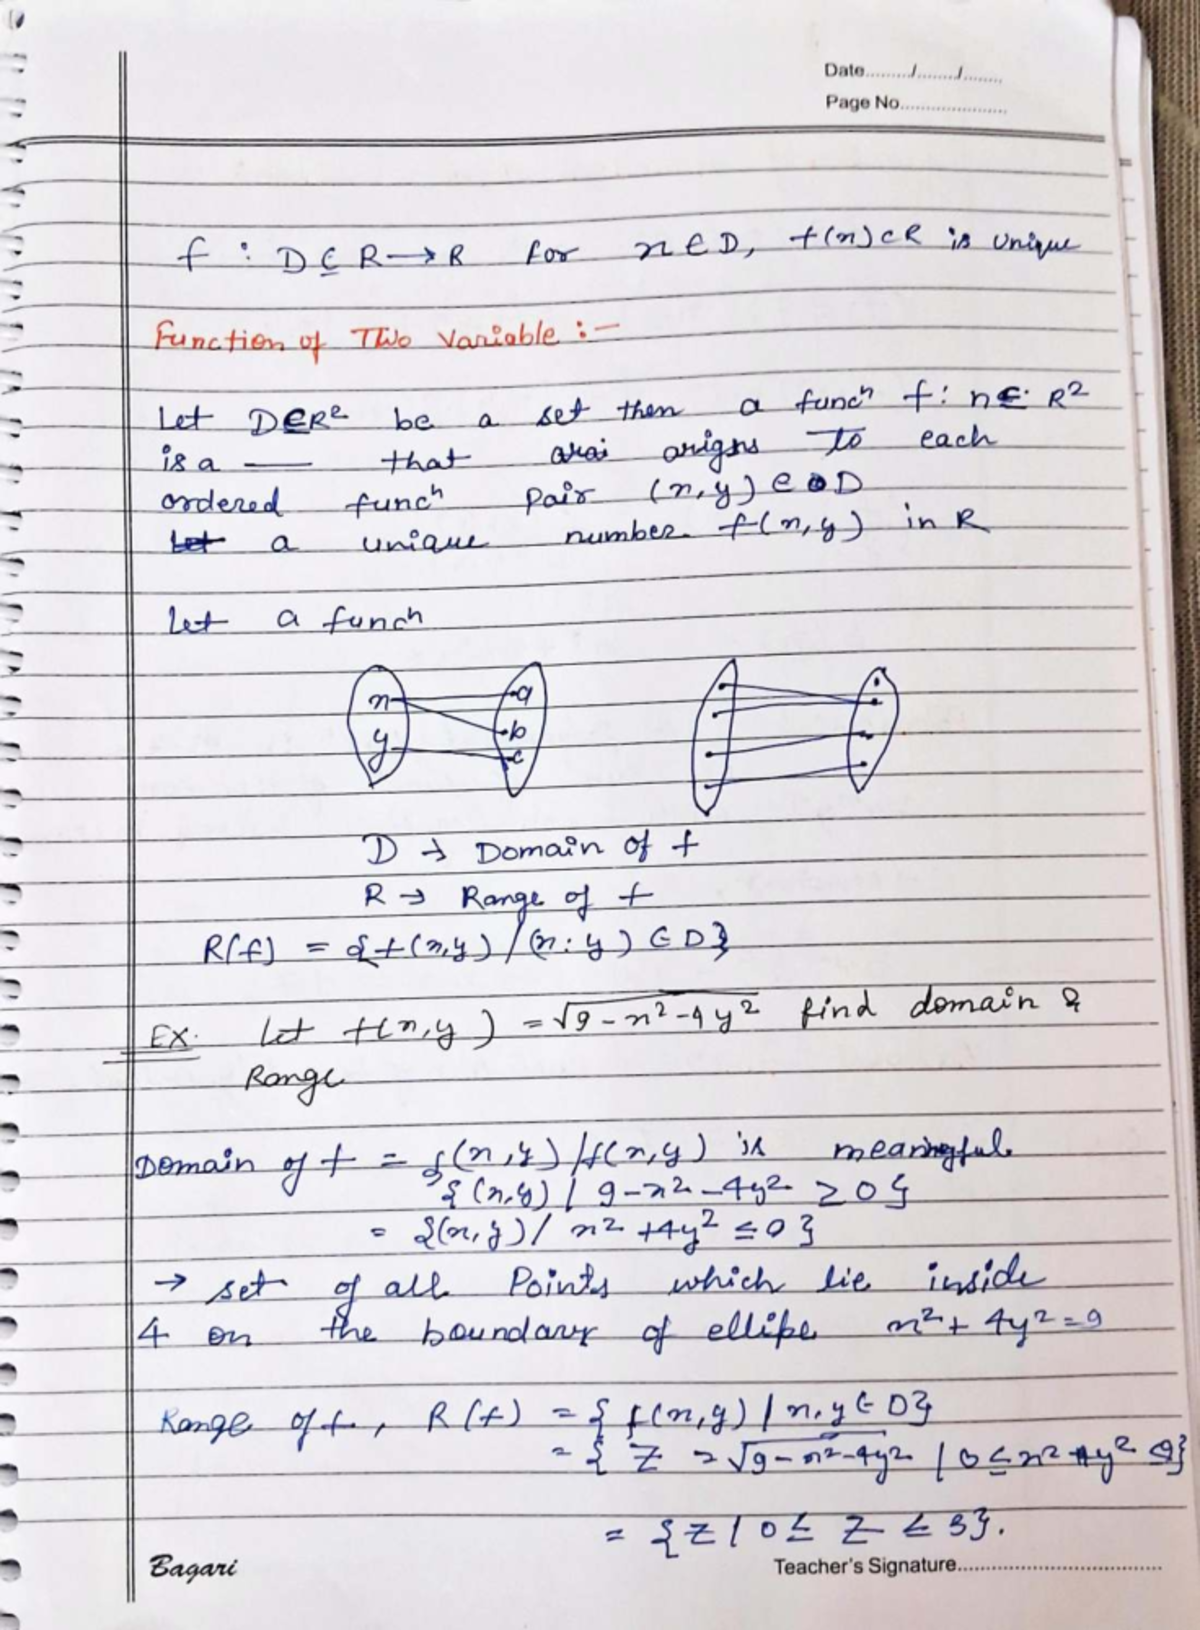 Date......../......../........
Page No......................
f : D ⊆ R → R for x ∈ D, f(x) ∈ R is unique
Function of Two Variable :-
Let D∈R² be a set then a funcⁿ f : n∈ R²
is a —— that assi arigns to each
ordered funcⁿ pair (x,y) ∈ D
Let a unique number f(x,y) in R
Let a funcⁿ
x a
y b
c
D → Domain of f
R → Range of f
R(f) = {f(x,y) / (x : y) ∈ D}
EX. Let f(x,y) = √9-x²-4y² find domain &
Range
Domain of f = {(x,y) / f(x,y) is meaningful
{(x,y) | 9-x²-4y² ≥ 0}
= {(x,y) / x² +4y² ≤ 0}
→ set of all Points which lie inside
4 on the boundary of ellipe x²+ 4y²=9
Range of f, R(f) = { f(x,y) | x,y ∈ D}
= { Z = √9-x²-4y² | 0 ≤ x² +4y² ≤ 9}
= {Z | 0 ≤ Z ≤ 3}.
Bagari
Teacher's Signature....................................